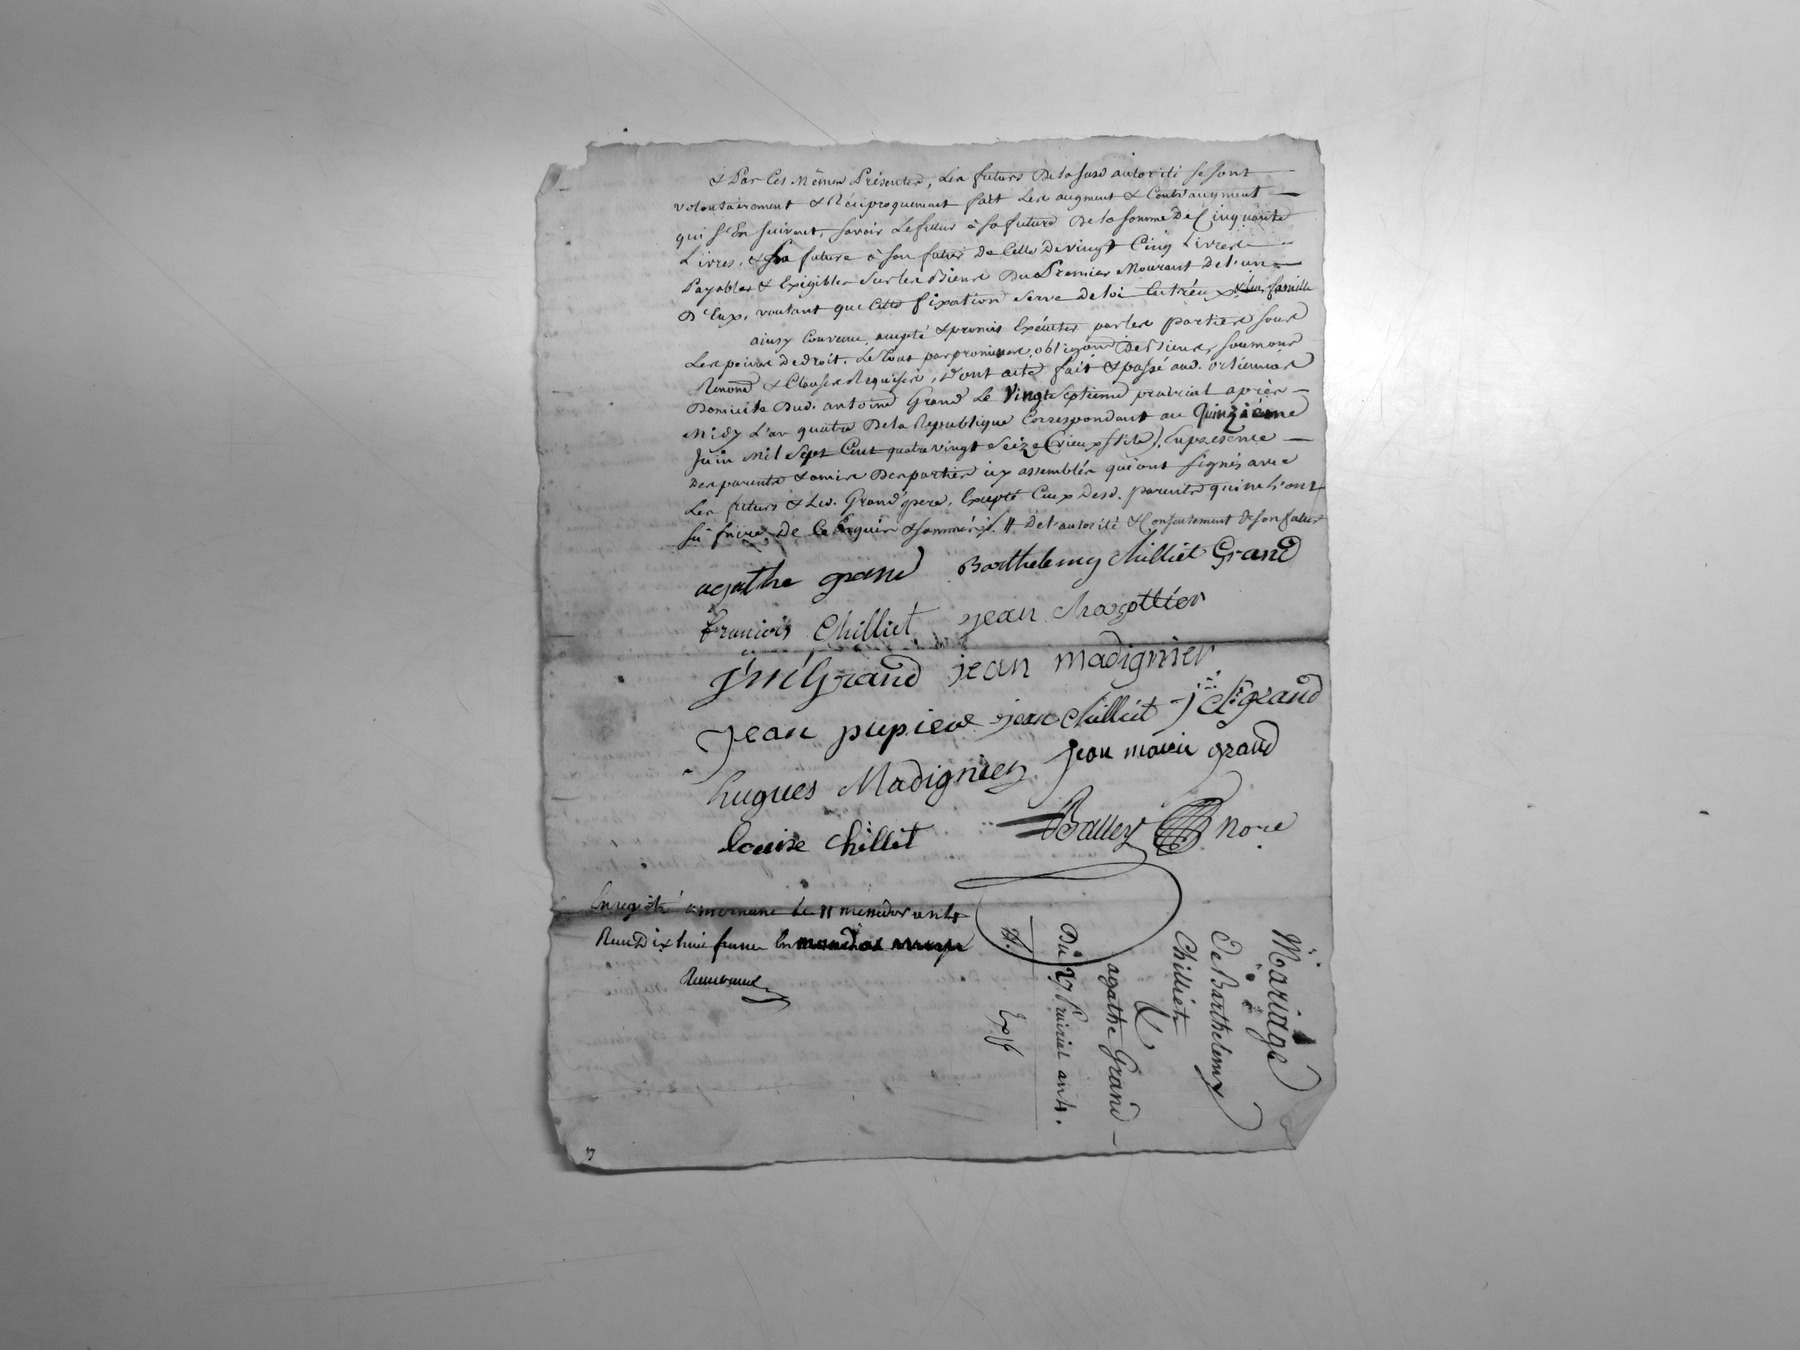 & Par Ces Mêmes Présentes, Les futurs De la susd autorité se sont
volontairement & Réciproquement fait Les augment & Contr'augment
qui s'En suivent, savoir Le futur à sa future De la somme De Cinquante
Livres, & La future à son futur De Celle De vingt Cinq Livres
Payables & Exigibles sur les Biens Du Premier Mourant De l'un
D'Eux, voulant que Cette fixation serve De loi Entr'eux & leur famille
ainsy Convenu, accepté & promis Exécuter par les parties sous
Les peines De droit. Le Tout par promesse, obligaõn De Biens, soumons
Renonõ & Clauses Requises, Dont acte fait & passé aud.
Domicile Dud. antoine Grand Le Vingt Septieme prairial après
Midy L'an quatre De la Republique Correspondant au Quinzième
Juin Mil Sept Cent quatre vingt Seize (vieux stile), En présence
Des parents & amis Des parties icy assemblés qui ont signés avec
Les futurs & Led. Grand pere, Excepté Ceux Desd. parents qui ne l'ont
sù faire De Ce Enquis & sommés ./. # De l'autorité & Consentement de son futur
agathe grand Barthelemy chilliet Grand
francois Chilliet jean chazottier
J M Grand jean madignier
Jean pupier jean chilliet J Cl grand
hugues Madignier jean marie grand
louise chillet Balley Nore
Enregistré à mornant le 11 messidor an 4
Reçu Dix huit francs En mandat
Mariage
De Barthelemy
Chilliet
&
agathe Grand
Du 27 Prairial an 4.
Exp